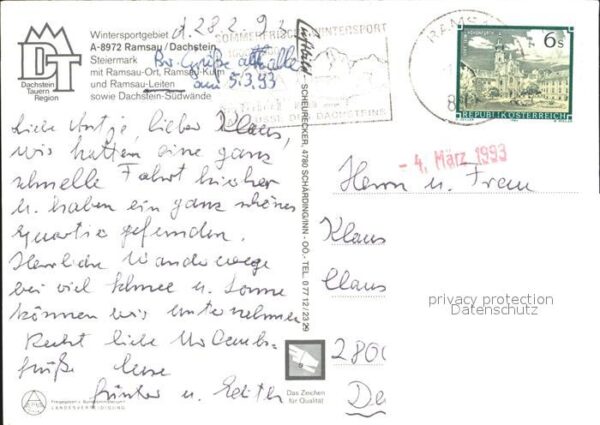 Wintersportgebiet
d. 28.2.93
A-8972 Ramsau/Dachstein
Steiermark
mit Ramsau-Ort, Ramsau-Kulm
und Ramsau-Leiten
sowie Dachstein-Südwände
DT
Dachstein
Tauern
Region
Grüße an alle
am 5/3.93
SOMMERFRISCHE WINTERSPORT
DES DACHSTEINS
RAMSAU
6 S
REPUBLIK ÖSTERREICH
- 4. März 1993
Liebe Antje, lieber Klaus,
wir hatten eine ganz
schnelle Fahrt hierher
u. haben ein ganz schönes
Quartier gefunden.
Herrliche Wanderwege
bei viel Schnee u. Sonne
können wir unternehmen
Recht liebe Urlaubs-
grüße
Günter u. Edith
Luftbild SCHEURECKER, 4780 SCHÄRDING/INN - OÖ. - TEL. 0 77 12 / 23 29
Herrn u. Frau
Klaus
Claus
privacy protection
Datenschutz
2800
De
Das Zeichen
für Qualität
LANDESVERTEIDIGUNG